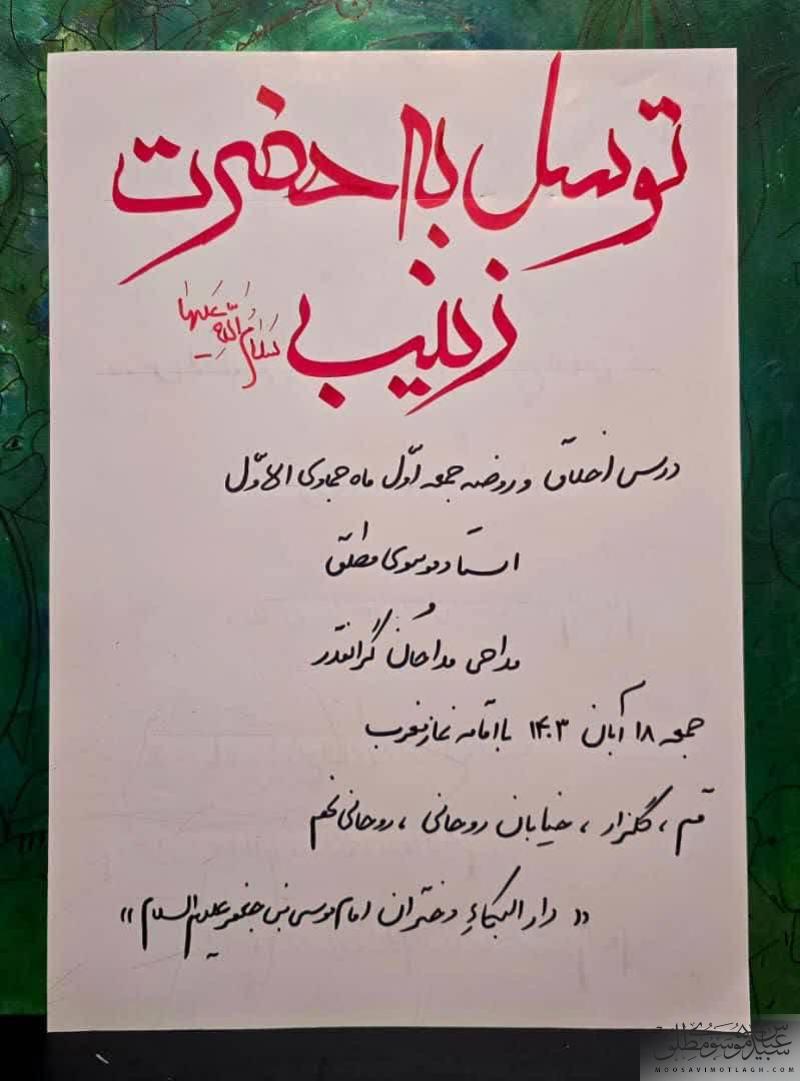 توسل به حضرت
زینب سلام الله علیها
درس اخلاق و روضه جمعه اوّل ماه جمادی الاوّل
استاد موسوی مطلق
و
مداحی مداحان گرانقدر
جمعه ۱۸ آبان ۱۴۰۳ با اقامه نماز مغرب
قم ، گلزار ، خیابان روحانی ، روحانی نهم
« دار البکاءِ دختران امام موسی بن جعفر علیهم السلام »
سید عباس موسوی مطلق
MOOSAVIMOTLAGH.COM